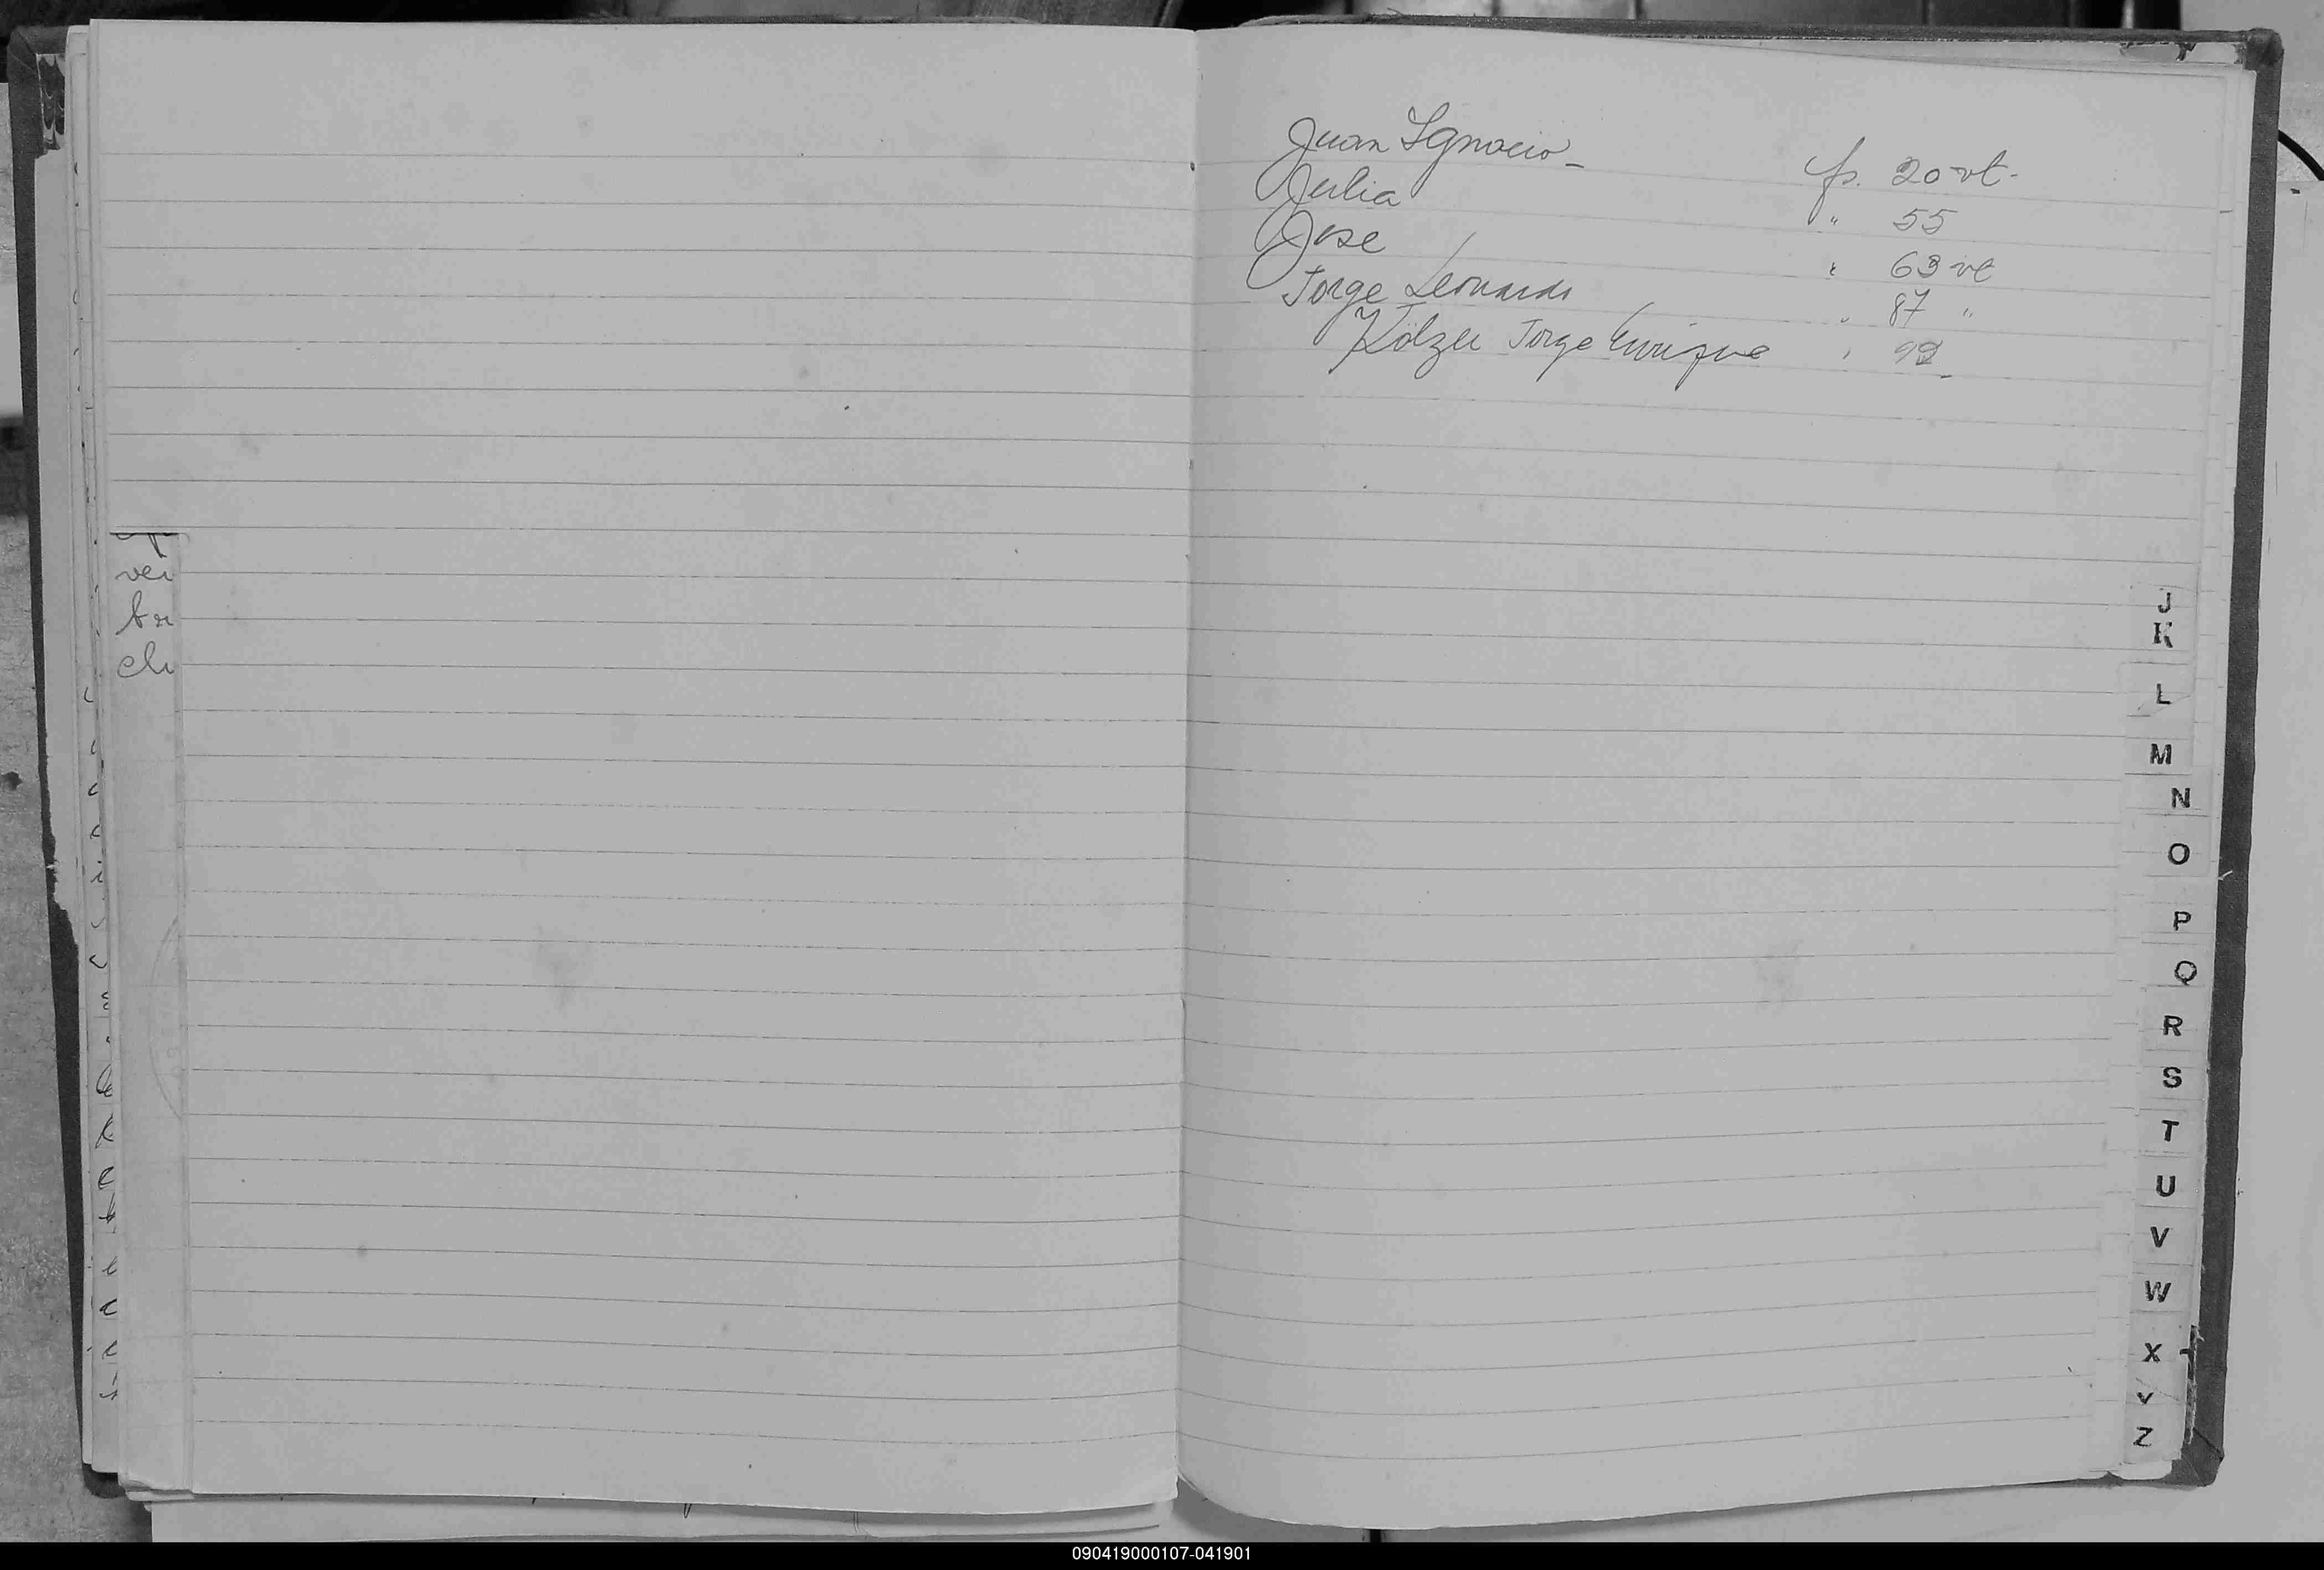 ver
br
ch
Juan Ignacio - fs. 20 vt.
Julia " 55
Jose " 63 vt
Jorge Leonardo " 87 "
Kölzer Jorge Enrique " 92
J
K
L
M
N
O
P
Q
R
S
T
U
V
W
X
Y
Z
090419000107-041901